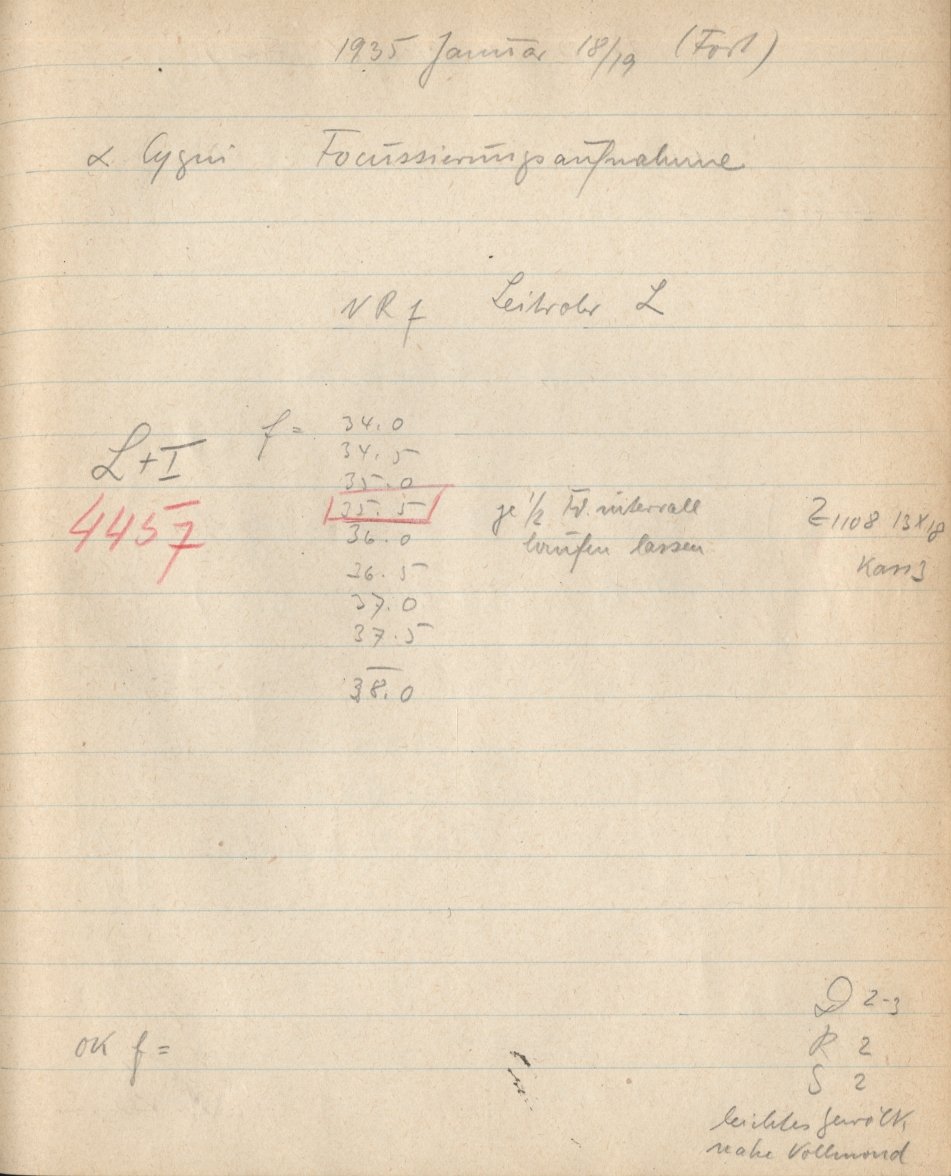 1935 Januar 18/19 (Fort)
α Cygni Focussierungsaufnahme
VRf Leitrohr L
L+I f = 34.0
34.5
35.0
4457 35.5 je 1/2 Fd. intervall Z1108 13x18
36.0 laufen lassen Kass 3
36.5
37.0
37.5
38.0
D 2-3
OK f = R 2
S 2
leichtes Gewölk,
nahe Vollmond